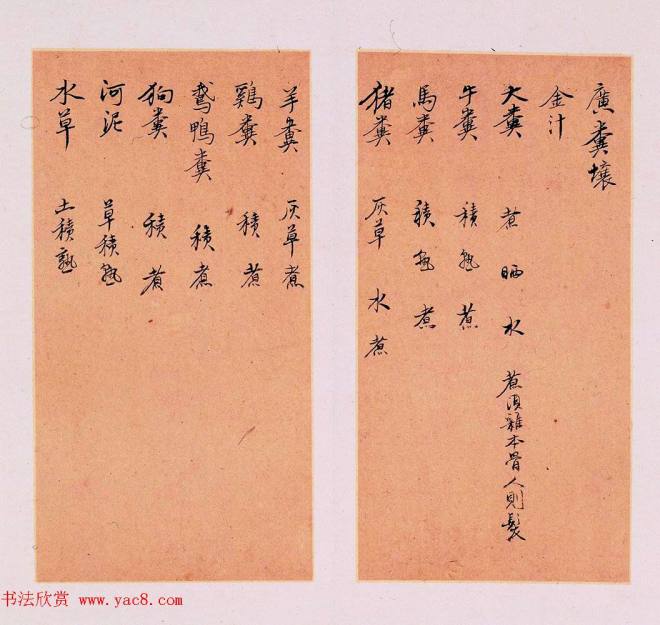 廣糞壤
金汁
大糞 煮 晒 水 煮須雜本骨人則髮
牛糞 積 熟 煮
馬糞 積 熟 煮
猪糞 灰草 水煮
羊糞 灰草煮
鷄糞 積煮
鵞鴨糞 積煮
狗糞 積煮
河泥 草積熟
水草 土積熟
书法欣赏 www.yac8.com